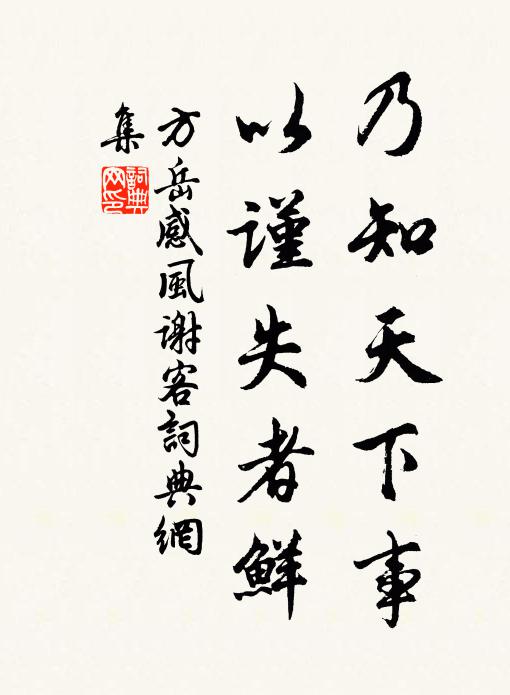 乃知天下事
以谨失者鮮
方岳感風谢客詞典網
集
詞典网印